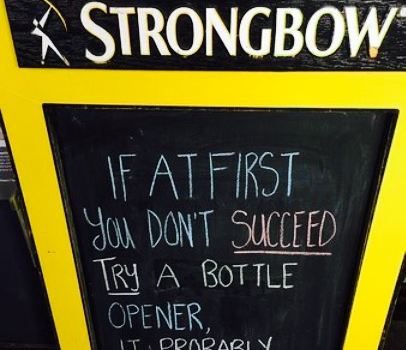 STRONGBOW
IF AT FIRST
YOU DON'T SUCCEED
TRY A BOTTLE
OPENER,
IT PROBABLY